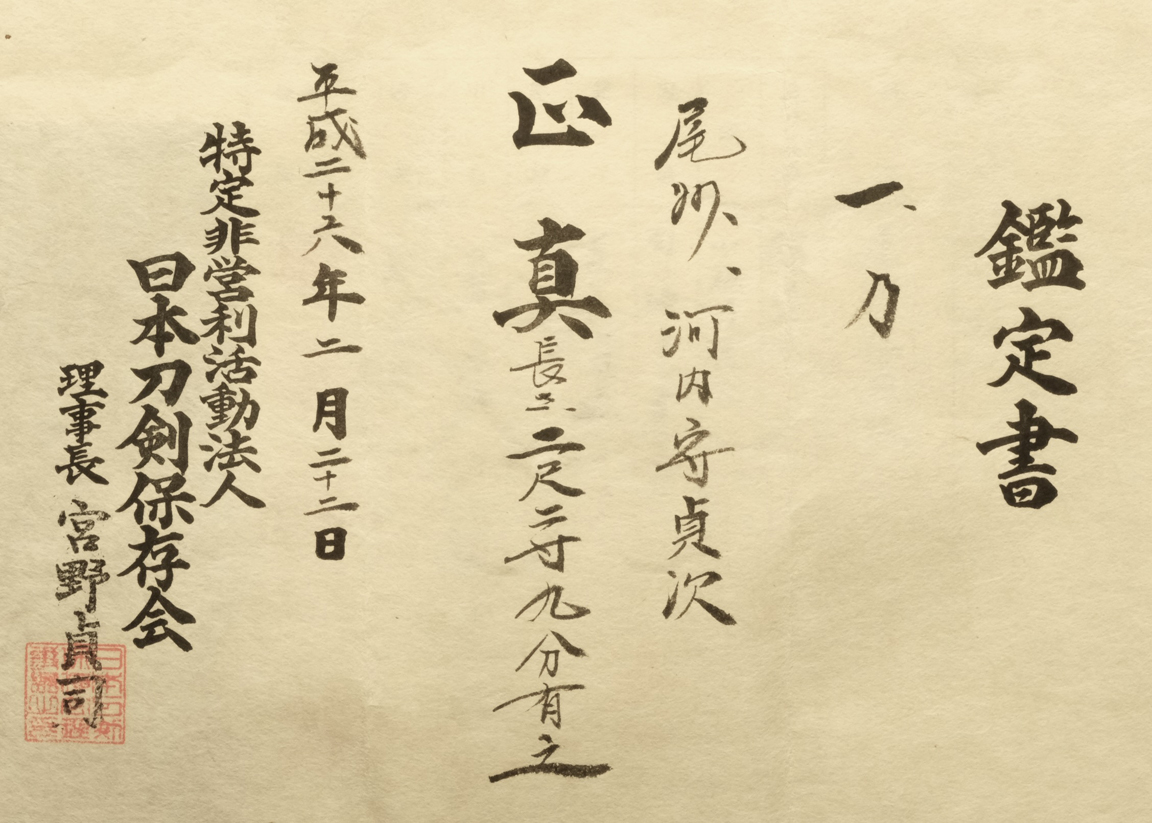 鑑定書
一、刀
尾州、河内守貞次
正真 長さ二尺二寸九分有之
平成二十六年二月二十二日
特定非営利活動法人
日本刀剣保存会
理事長 宮野貞司